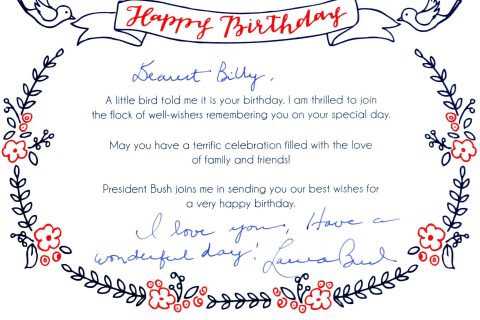 Happy Birthday
Dearest Billy,
A little bird told me it is your birthday. I am thrilled to join
the flock of well-wishers remembering you on your special day.
May you have a terrific celebration filled with the love
of family and friends!
President Bush joins me in sending you our best wishes for
a very happy birthday.
I love you, Have a
wonderful day! Laura Bush